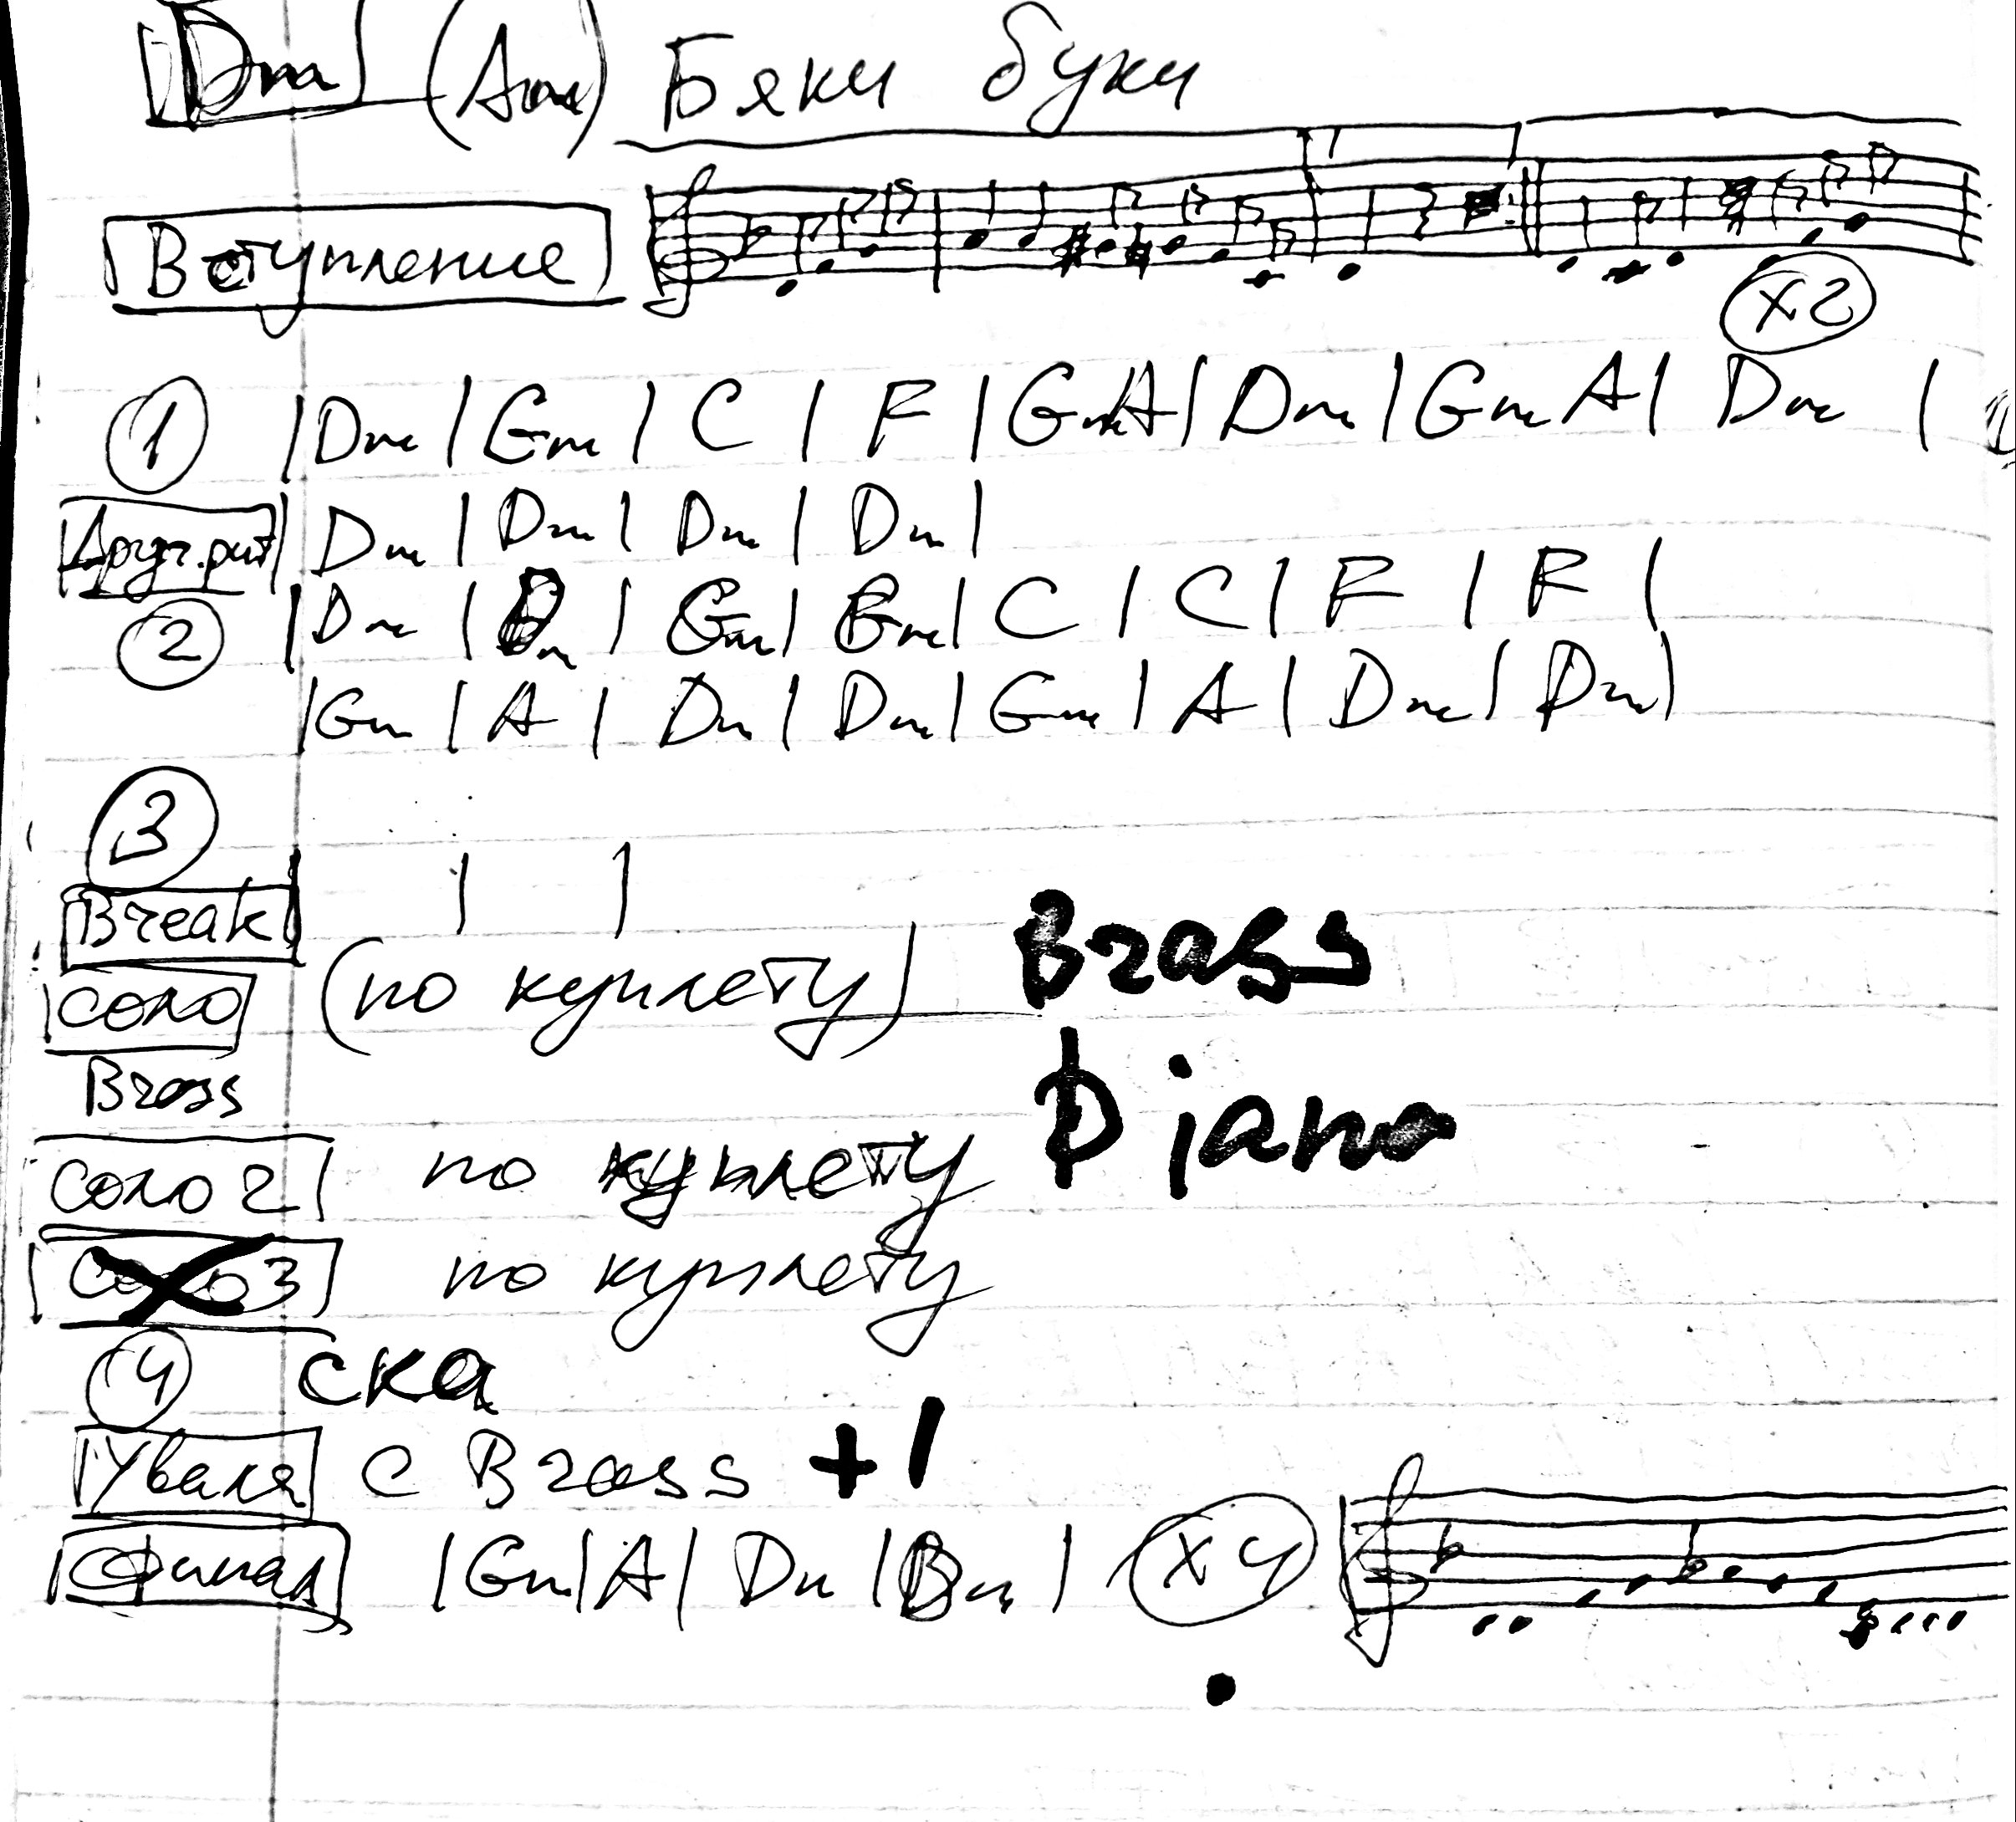 Dm (Am) Бяки буки
Вступление
x2
1 | Dm | Gm | C | F | Gm A | Dm | Gm A | Dm |
Друг.рит | Dm | Dm | Dm | Dm |
2 | Dm | Dm | Gm | Gm | C | C | F | F |
| Gm | A | Dm | Dm | Gm | A | Dm | Dm |
3
Break | |
Соло (по куплету) Brass
Brass Piano
Соло 2 по куплету
Соло 3 по куплету
4 ска
с Brass +1
Финал | Gm | A | Dm | Dm | x4